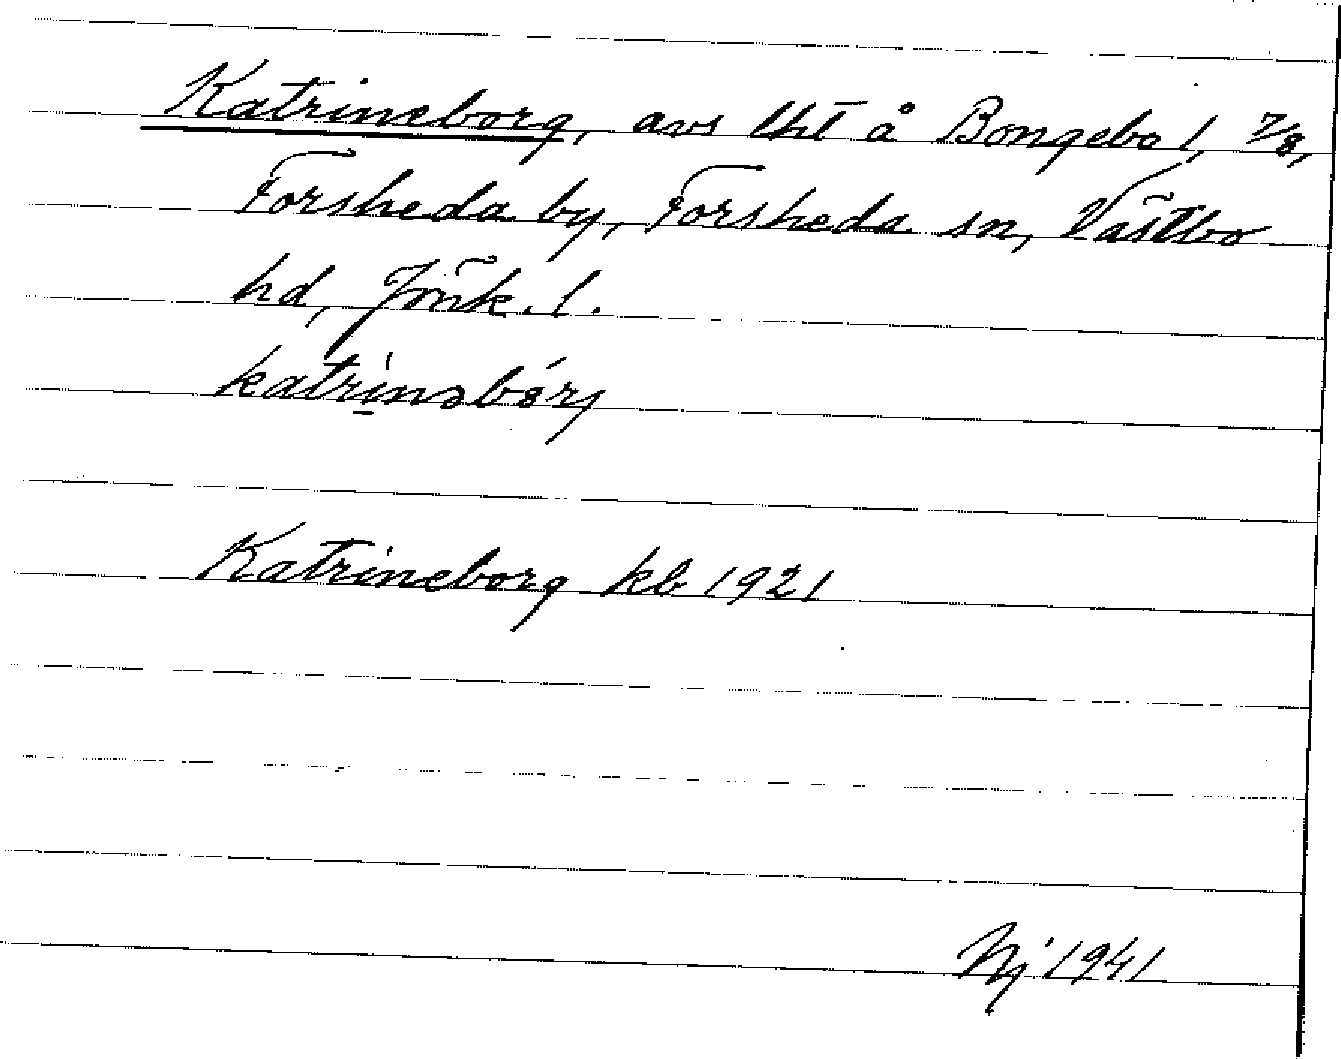 Katrineborg, avs lht å Bongebo 1, 7/8,
Forsheda by, Forsheda sn, Västbo
hd, Jönk. l.
katrinəbórj
Katrineborg kb 1921
Nj 1941